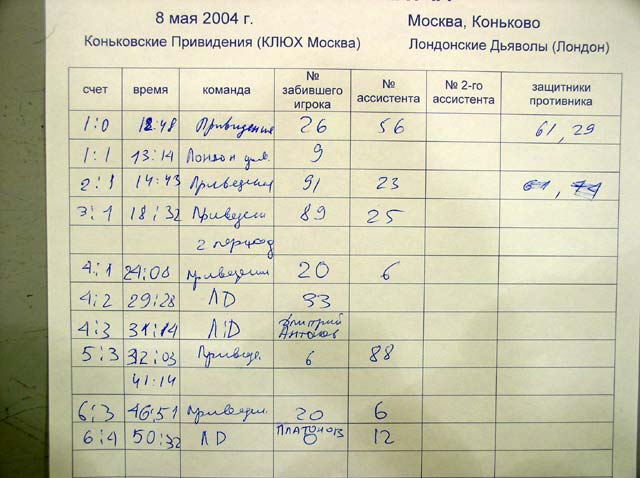 8 мая 2004 г. Москва, Коньково
Коньковские Привидения (КЛЮХ Москва) Лондонские Дьяволы (Лондон)
счет время команда № забившего игрока № ассистента № 2-го ассистента защитники противника
1:0 12:48 Привидения 26 56 61, 29
1:1 13:14 Лондон дья. 9
2:1 14:43 Приведения 91 23
3:1 18:32 Приведен 89 25
2 период
4:1 24:08 Приведения 20 6
4:2 29:28 ЛД 33
4:3 31:14 ЛД Дмитрий
5:3 32:03 Привид. 6 88
41:14
6:3 46:51 Приведен. 20 6
6:4 50:32 ЛД Платонов 0 12